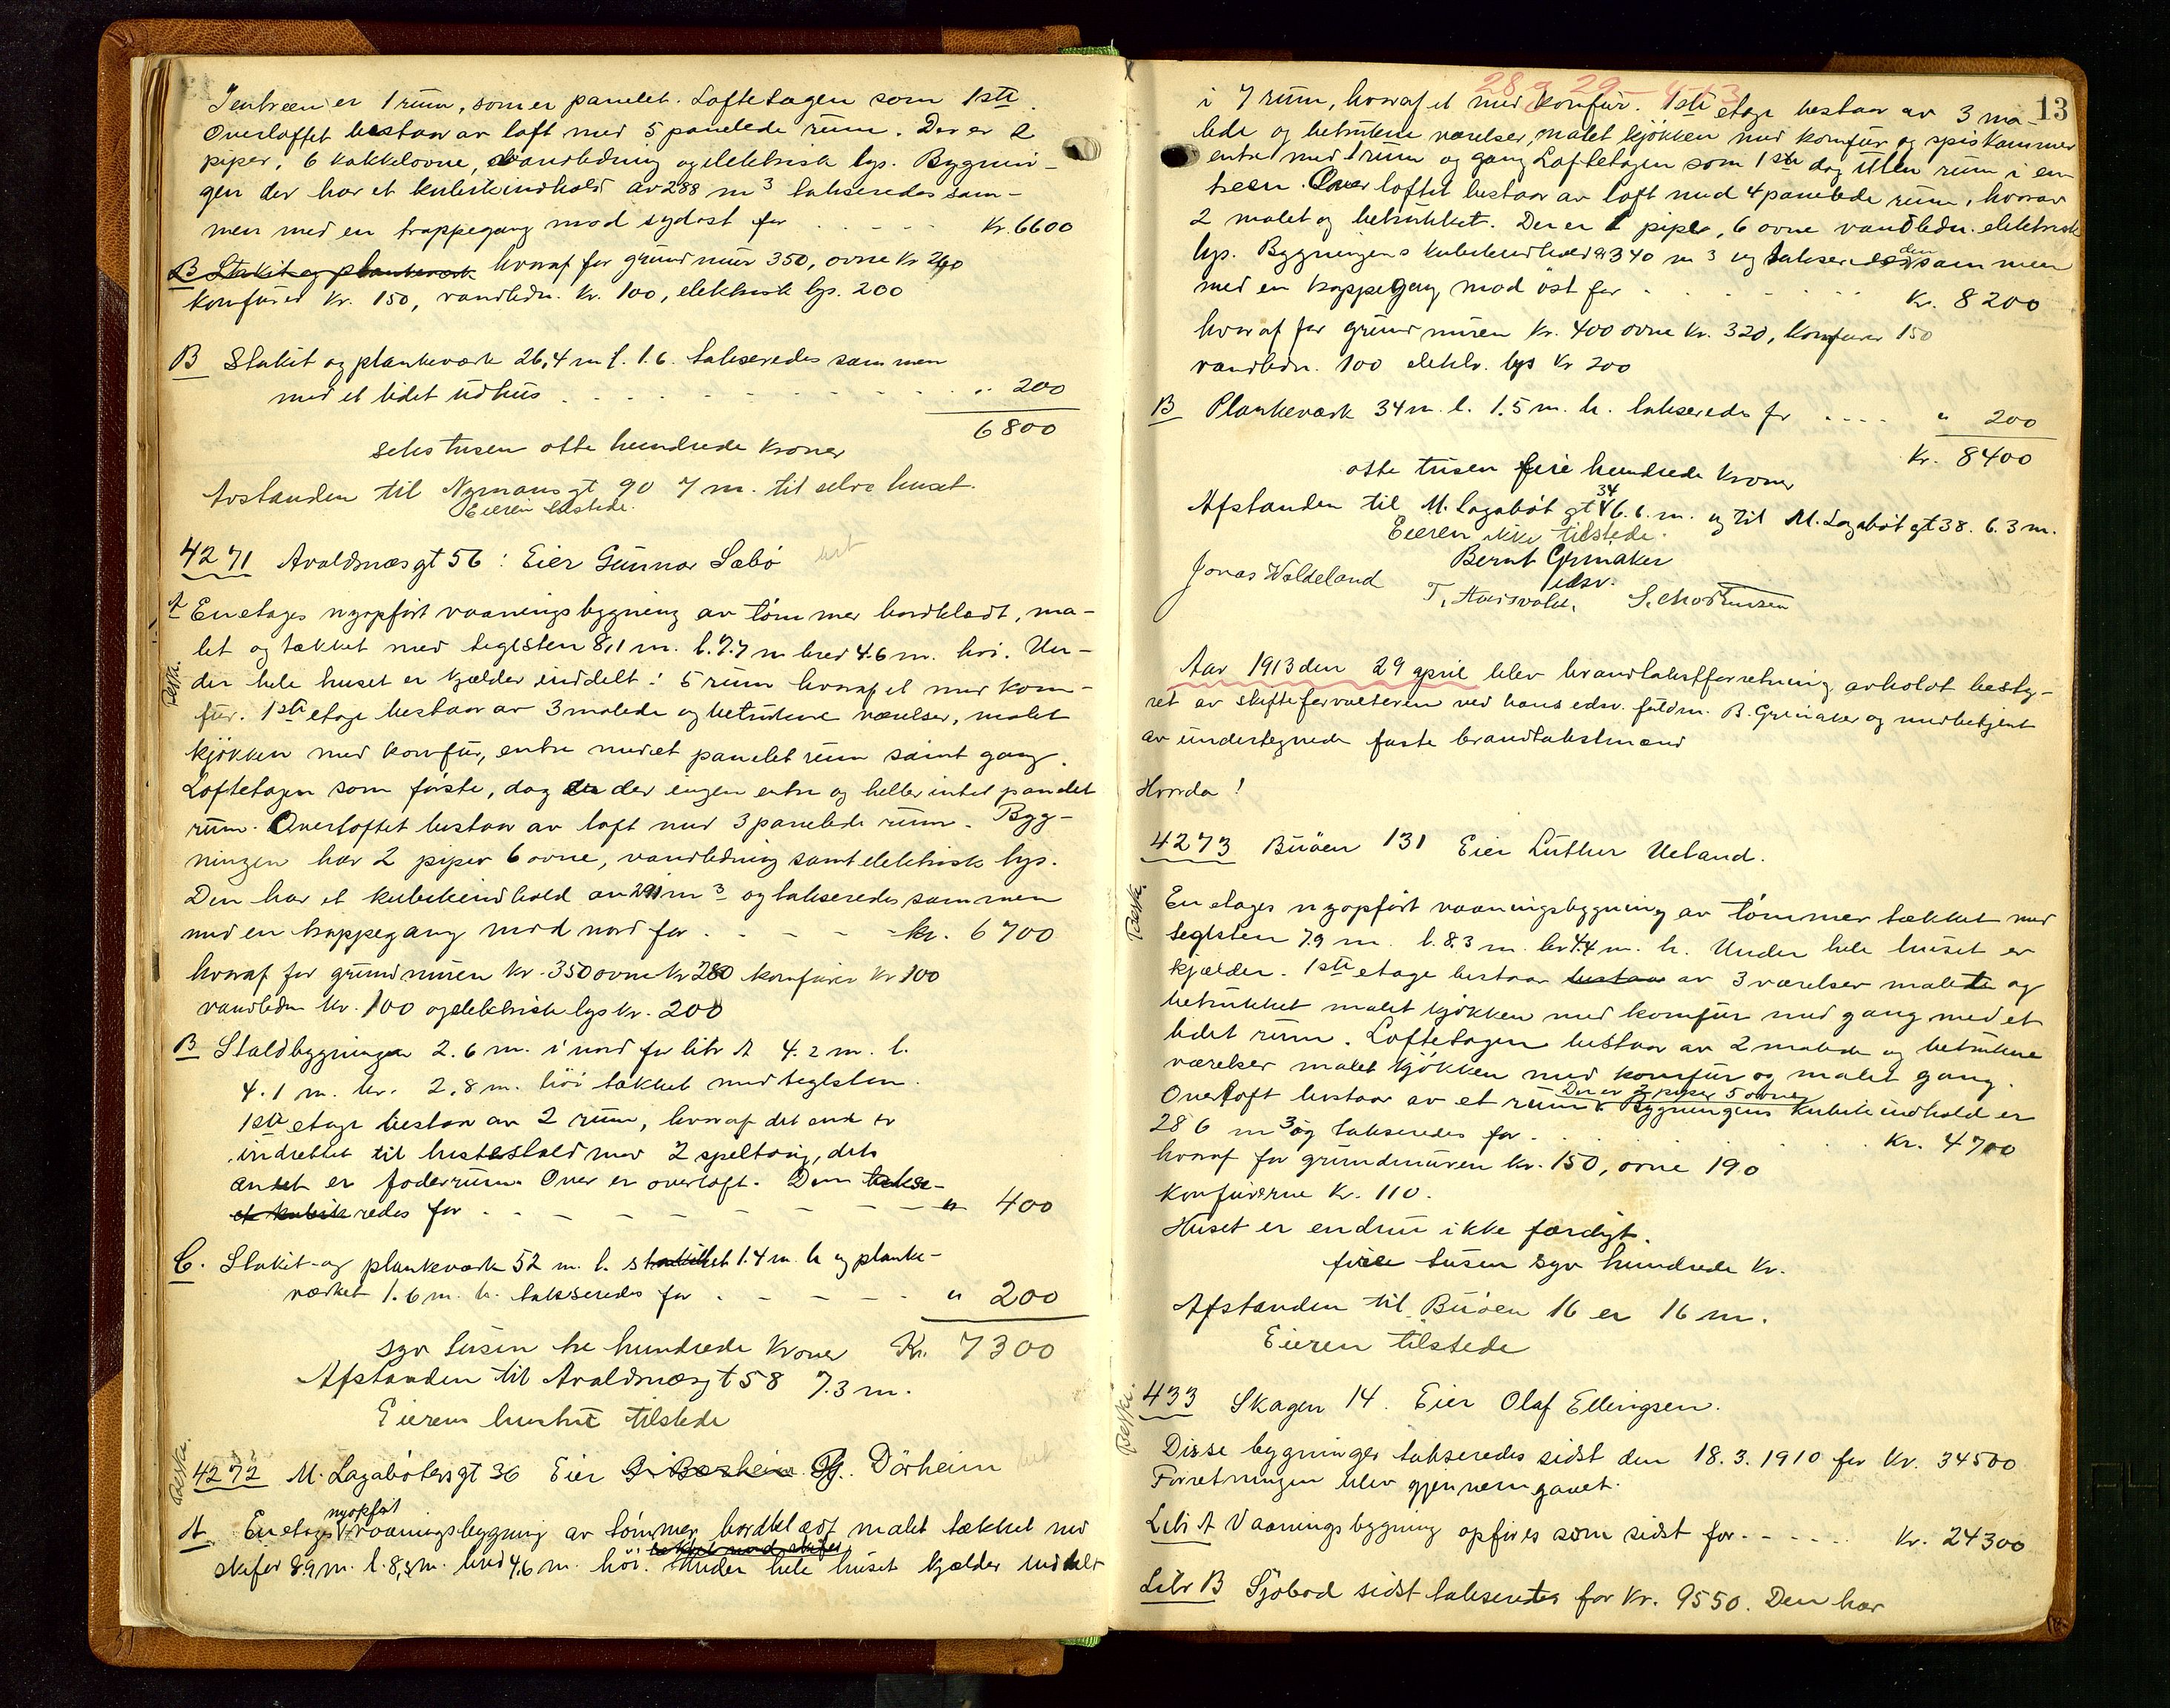 I entreen er 1 rum, som er panelet. Loftetagen som 1ste.
Overloftet bestaar av loft med 5 panelede rum. Der er 2
piper, 6 kakkelovne, vandledning og elektrisk lys. Bygnin-
gen der har et kubikindhold av 288 m3 takseredes sam-
men med en trappegang mod sydøst for . . . . . Kr. 6600
B Stakit og plankeværk hvoraf for grundmur 350, ovne Kr 260
komfurer Kr. 150, vandledn. Kr. 100, elektrisk lys. 200
B Stakit og plankeværk 26,4 m l. 1.6. takseredes sammen
med et lidet udhus . . . . . . . . . " 200
6800
seks tusen otte hundrede kroner
Avstanden til Nymansgt 90 7 m. til selve huset.
Eieren tilstede.
4271 Avaldsnæsgt 56: Eier Gunnar Sæbö
A Enetages nyopført vaaningsbygning av tömmer bordklædt, ma-
let og tækket med teglsten 8,1 m. l. 7.7 m bred 4.6 m. höi. Un-
der hele huset er kjælder inddelt i 5 rum hvoraf et med kom-
fur. 1ste etage bestaar av 3 malede og betrukne værelser, malet
kjökken med komfur, entre med et panelet rum samt gang.
Loftetagen som förste, dog er der ingen entre og heller intet panelet
rum. Overloftet bestaar av loft med 3 panelede rum. Byg-
ningen har 2 piper 6 ovne, vandledning samt elektrisk lys.
Den har et kubikindhold av 291 m3 og takseredes sammen
med en trappegang mod nord for . - - - - kr. 6700
hvoraf for grundmuren kr. 350 ovne kr 280 komfurer kr 100
vandledn kr. 100 og elektrisk lys kr. 200
B Staldbygningen 2.6 m. i nord for litr A 4.2 m. l.
4.1 m. br. 2,8 m. höi tækket med teglsten.
1ste etage bestaar av 2 rum, hvoraf det ene er
indrettet til hestestald med 2 spiltaug, det
andet er foderrum. Over er overloft. Den takse-
et kubik redes for . - - - - - - - - " 400
C. Stakit og plankeværk 52 m. l. stakittet 1.4 m. h og planke-
værket 1.6 m. h. takseredes for . - - - - . " 200
syv tusen tre hundrede kroner Kr. 7300
Afstanden til Avaldsnæsgt 58 7.3 m.
Eierens hustru tilstede
4272 M. Lagabötersgt 36 Eier G. Dörheim
A Enetages nyopført vaaningsbygning av tömmer bordklædt malet tækket med
tækket med skifer
skifer 8.9 m. l. 8,3 m. bred 4.6 m. höi. Under hele huset kjælder inddelt
28 & 29 - 4 - 13
13
i 7 rum, hvoraf et med komfur. 1ste etage bestaar av 3 ma-
lede og betrukne værelser, malet kjökken med komfur og spiskammer
entre med 1 rum og gang Loftetagen som 1ste dog uten rum i en-
treen. Over loftet bestaar av loft med 4 panelede rum, hvorav
2 malet og betrukket. Der er 1 pipe, 6 ovne vandledn. elektrisk
lys. Bygningens kubikindhold er 340 m3 og takseredes den sammen
med en trappegang mod öst for . . . . . . Kr. 8200
hvoraf for grundmuren Kr. 400 ovne Kr. 320, komfurer 150
vandledn. 100 elektr. lys Kr 200
B Plankeværk 34 m. l. 1.5 m. h. takseredes for . . . . " 200
Kr. 8400
otte tusen fire hundrede kroner
Afstanden til M. Lagaböt gt 34 6.6. m. og til M. Lagaböt gt 38. 6.3 m.
Eieren ikke tilstede.
Bernt Grimaker
edsv.
Jonas Waldeland T. Hausvold. S. Mortensen
Aar 1913 den 29 april blev brandtakstforretning avholdt besty-
ret av skifteforvalteren ved hans edsv. fuldm. B. Grimaker og medbetjent
av undertegnede faste brandtakstmænd
Hvorda!
4273 Buöen 131 Eier Luther Ueland.
Enetages nyopført vaaningsbygning av tömmer tækket med
teglsten 7.9 m. l. 8.3 m. br 4.4 m. h. Under hele huset er
kjælder. 1ste etage bestaar bestaar av 3 værelser malede og
betrukket malet kjökken med komfur med gang med et
lidet rum. Loftetagen bestaar av 2 malede og betrukne
værelser malet kjökken med komfur og malet gang.
Der er 2 piper 5 ovne
Overloft bestaar av et rum. Bygningens kubikindhold er
286 m3 og takseredes for . . . . . . . Kr. 4700
hvoraf for grundmuren Kr. 150, ovne 190
Komfurerne Kr. 110.
Huset er endnu ikke færdigt.
fire tusen syv hundrede Kr.
Afstanden til Buöen 16 er 16 m.
Eieren tilstede
433 Skagen 14. Eier Olaf Ellingsen.
Disse bygninger takseredes sidst den 18.3.1910 for Kr. 34500
Forretningen blev gjennemgaaet.
Litr A Vaaningsbygning opføres som sidst for. - - - . . Kr. 24300
Litr B Sjöbod sidst takseredes for Kr. 9550. Den har